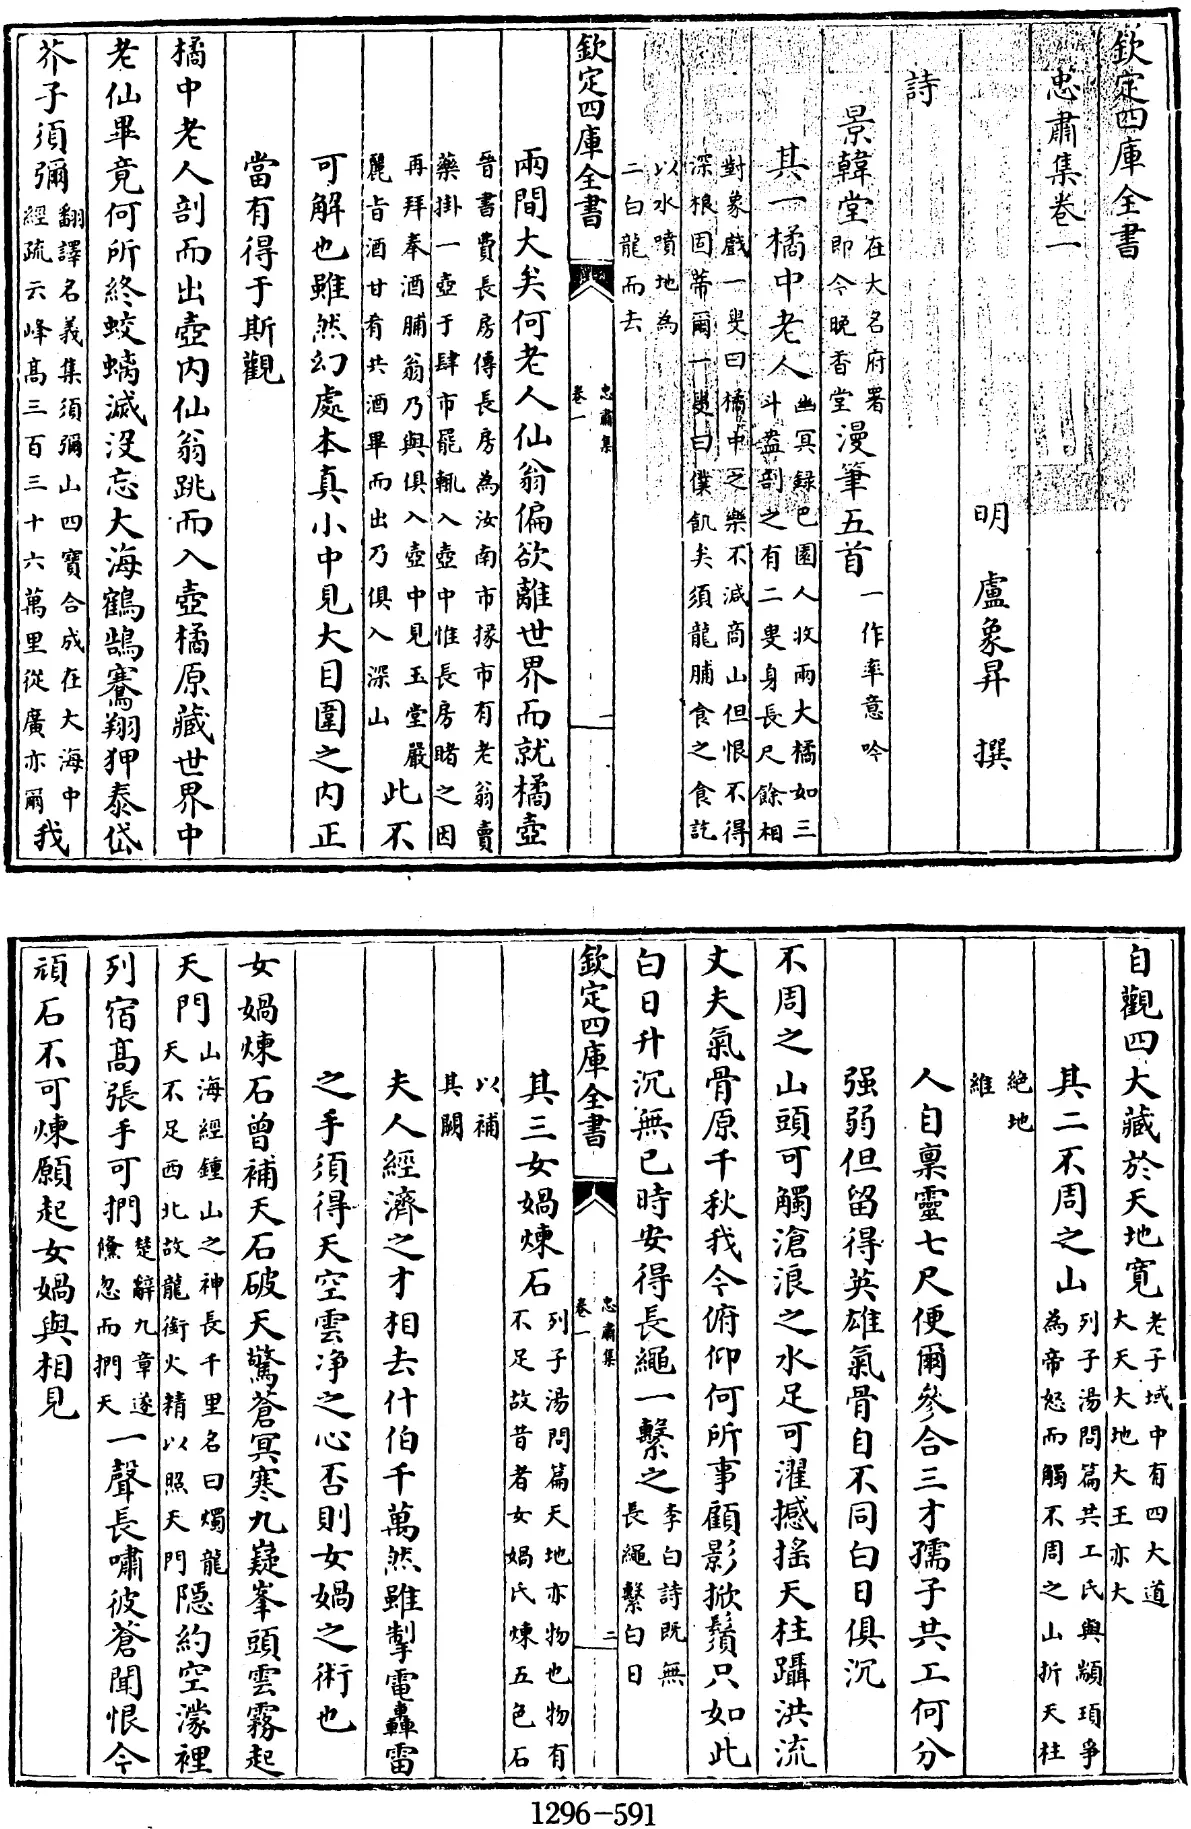 欽定四庫全書
忠肅集卷一
明 盧象昇 撰
詩
景韓堂在大名府署即今晚香堂漫筆五首一作率意吟
其一橘中老人幽冥録巴園人收兩大橘如三斗盎剖之有二叟身長尺餘相
對象戲一叟曰橘中之樂不減商山但恨不得深根固蒂爾一叟曰僕飢矣須龍脯食之食訖
以水噴地為二白龍而去
欽定四庫全書 忠肅集 卷一 一
兩間大矣何老人仙翁偏欲離世界而就橘壺
晉書費長房傳長房為汝南市掾市有老翁賣藥掛一壺于肆市罷輒入壺中惟長房睹之因
再拜奉酒脯翁乃與俱入壺中見玉堂嚴麗旨酒甘肴共酒畢而出乃俱入深山此不
可解也雖然幻處本真小中見大目圍之内正
當有得于斯觀
橘中老人剖而出壺内仙翁跳而入壺橘原藏世界中
老仙畢竟何所終蛟螭滅没忘大海鶴鵠騫翔狎泰岱
芥子須彌翻譯名義集須彌山四寶合成在大海中經疏云峰髙三百三十六萬里從廣亦爾我
自觀四大藏於天地寛老子域中有四大道大天大地大王亦大
其二不周之山列子湯問篇共工氏與顓頊爭為帝怒而觸不周之山折天柱
絶地維
人自稟靈七尺便爾參合三才孺子共工何分
强弱但留得英雄氣骨自不同白日俱沉
不周之山頭可觸滄浪之水足可濯撼搖天柱躡洪流
丈夫氣骨原千秋我今俯仰何所事顧影掀鬚只如此
白日升沉無已時安得長繩一繫之李白詩既無長繩繫白日
欽定四庫全書 忠肅集 卷一 二
其三女媧煉石列子湯問篇天地亦物也物有不足故昔者女媧氏煉五色石
以補其闕
夫人經濟之才相去什伯千萬然雖掣電轟雷
之手須得天空雲净之心否則女媧之術也
女媧煉石曾補天石破天驚蒼冥寒九嶷峯頭雲霧起
天門山海經鍾山之神長千里名曰燭龍天不足西北故龍銜火精以照天門隱約空濛裡
列宿髙張手可捫楚辭九章遂儵忽而捫天一聲長嘯彼蒼聞恨今
頑石不可煉願起女媧與相見
1296-591